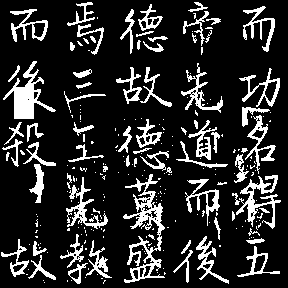 而功名得五
帝先道而後
德故德莫盛
焉三王先教
而後殺故